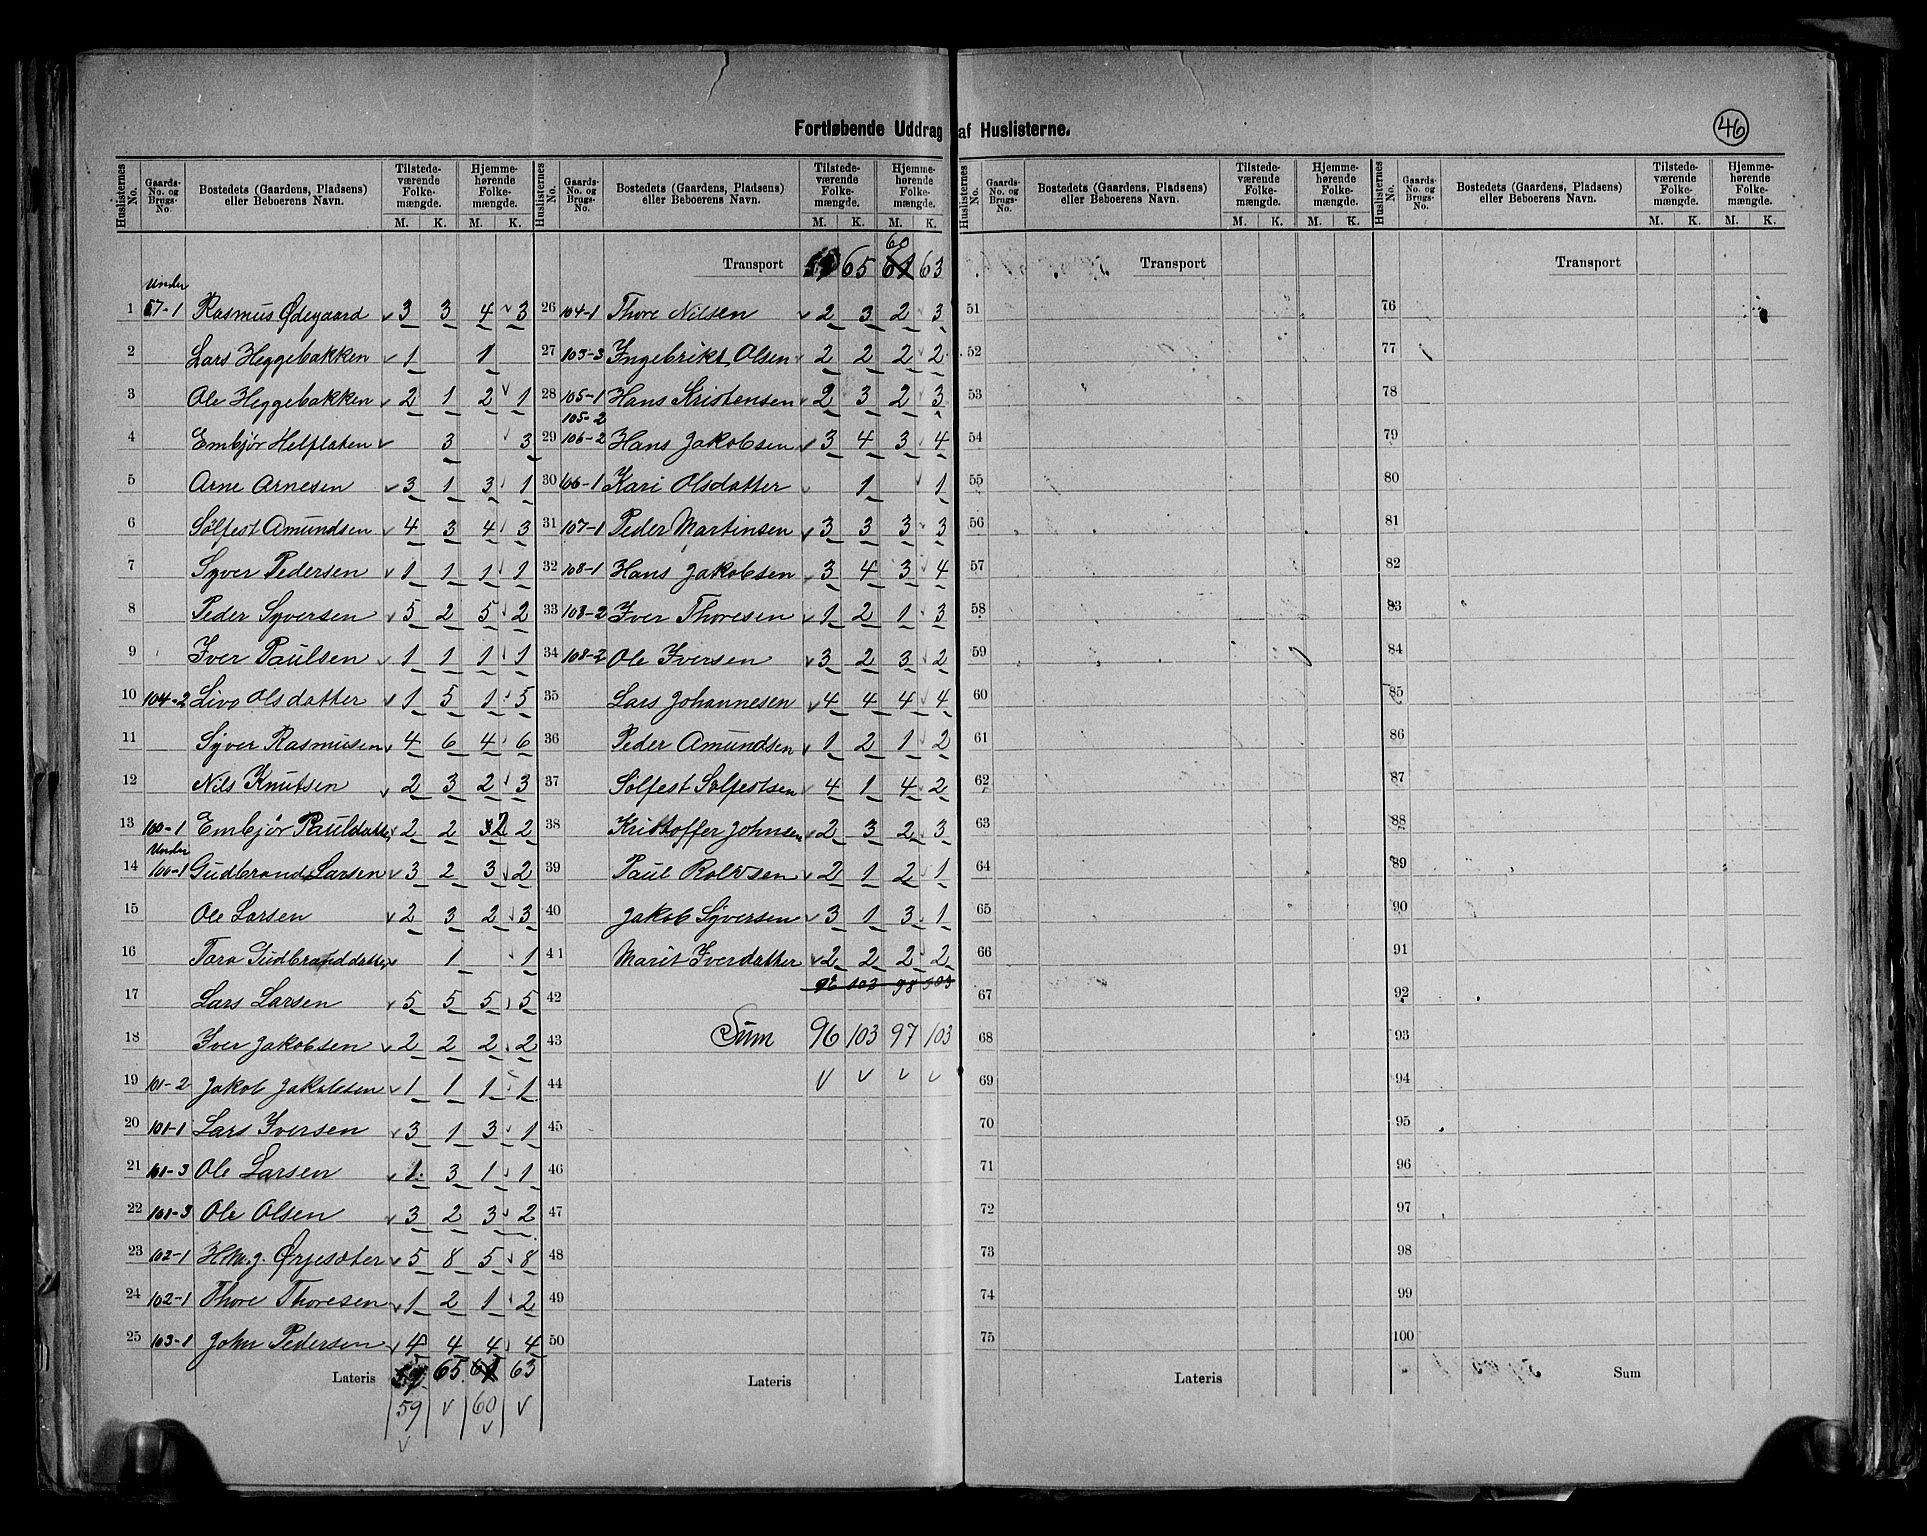 Fortløbende Uddrag af Huslisterne.
46
Huslisternes No. Gaards-No. og Brugs-No. Bostedets (Gaardens, Pladsens) eller Beboerens Navn. Tilstedeværende Folkemængde. M. K. Hjemmehørende Folkemængde. M. K.
Under
1 67-1 Rasmus Ødegaard 3 3 4 3
2 Lars Heggebakken 1 1
3 Ole Heggebakken 2 1 2 1
4 Embjør Helflaten 3 3
5 Arne Arnesen 3 1 3 1
6 Sølfest Amundsen 4 3 4 3
7 Syver Pedersen 1 1 1 1
8 Peder Syversen 5 2 5 2
9 Iver Paulsen 1 1 1 1
10 104-2 Livo Olsdatter 1 5 1 5
11 Syver Rasmusen 4 6 4 6
12 Nils Knutsen 2 3 2 3
13 100-1 Embjør Paulsdatter 2 2 2 2
Under
14 100-1 Gudbrand Larsen 3 2 3 2
15 Ole Larsen 2 3 2 3
16 Tora Gudbranddatter 1 1
17 Lars Larsen 5 5 5 5
18 Iver Jakobsen 2 2 2 2
19 101-2 Jakob Jakobsen 1 1 1 1
20 101-1 Lars Iversen 3 1 3 1
21 101-3 Ole Larsen 1 3 1 1
22 101-3 Ole Olsen 3 2 3 2
23 102-1 H.M.J. Ørjesæter 5 8 5 8
24 102-1 Thore Thoresen 1 2 1 2
25 103-1 John Pedersen 4 4 4 4
Lateris 65 61 63
59 60
Huslisternes No. Gaards-No. og Brugs-No. Bostedets (Gaardens, Pladsens) eller Beboerens Navn. Tilstedeværende Folkemængde. M. K. Hjemmehørende Folkemængde. M. K.
60
Transport 59 65 61 63
26 104-1 Thore Nilsen 2 3 2 3
27 103-3 Ingebrikt Olsen 2 2 2 2
28 105-1 Hans Kristensen 2 3 2 3
105-2
29 106-2 Hans Jakobsen 3 4 3 4
30 106-1 Kari Olsdatter 1 1
31 107-1 Peder Martinsen 3 3 3 3
32 108-1 Hans Jakobsen 3 4 3 4
33 108-2 Iver Thoresen 1 2 1 3
34 108-2 Ole Iversen 3 2 3 2
35 Lars Johannesen 4 4 4 4
36 Peder Amundsen 1 2 1 2
37 Sølfest Solfestsen 4 1 4 2
38 Kristoffer Johnsen 2 3 2 3
39 Paul Rolvsen 2 1 2 1
40 Jakob Syversen 3 1 3 1
41 Marit Iverdatter 2 2 2 2
96 103 98 103
42
43 Sum 96 103 97 103
44
45
46
47
48
49
50
Lateris
Huslisternes No. Gaards-No. og Brugs-No. Bostedets (Gaardens, Pladsens) eller Beboerens Navn. Tilstedeværende Folkemængde. M. K. Hjemmehørende Folkemængde. M. K.
Transport
51
52
53
54
55
56
57
58
59
60
61
62
63
64
65
66
67
68
69
70
71
72
73
74
75
Lateris
Huslisternes No. Gaards-No. og Brugs-No. Bostedets (Gaardens, Pladsens) eller Beboerens Navn. Tilstedeværende Folkemængde. M. K. Hjemmehørende Folkemængde. M. K.
Transport
76
77
78
79
80
81
82
83
84
85
86
87
88
89
90
91
92
93
94
95
96
97
98
99
100
Sum